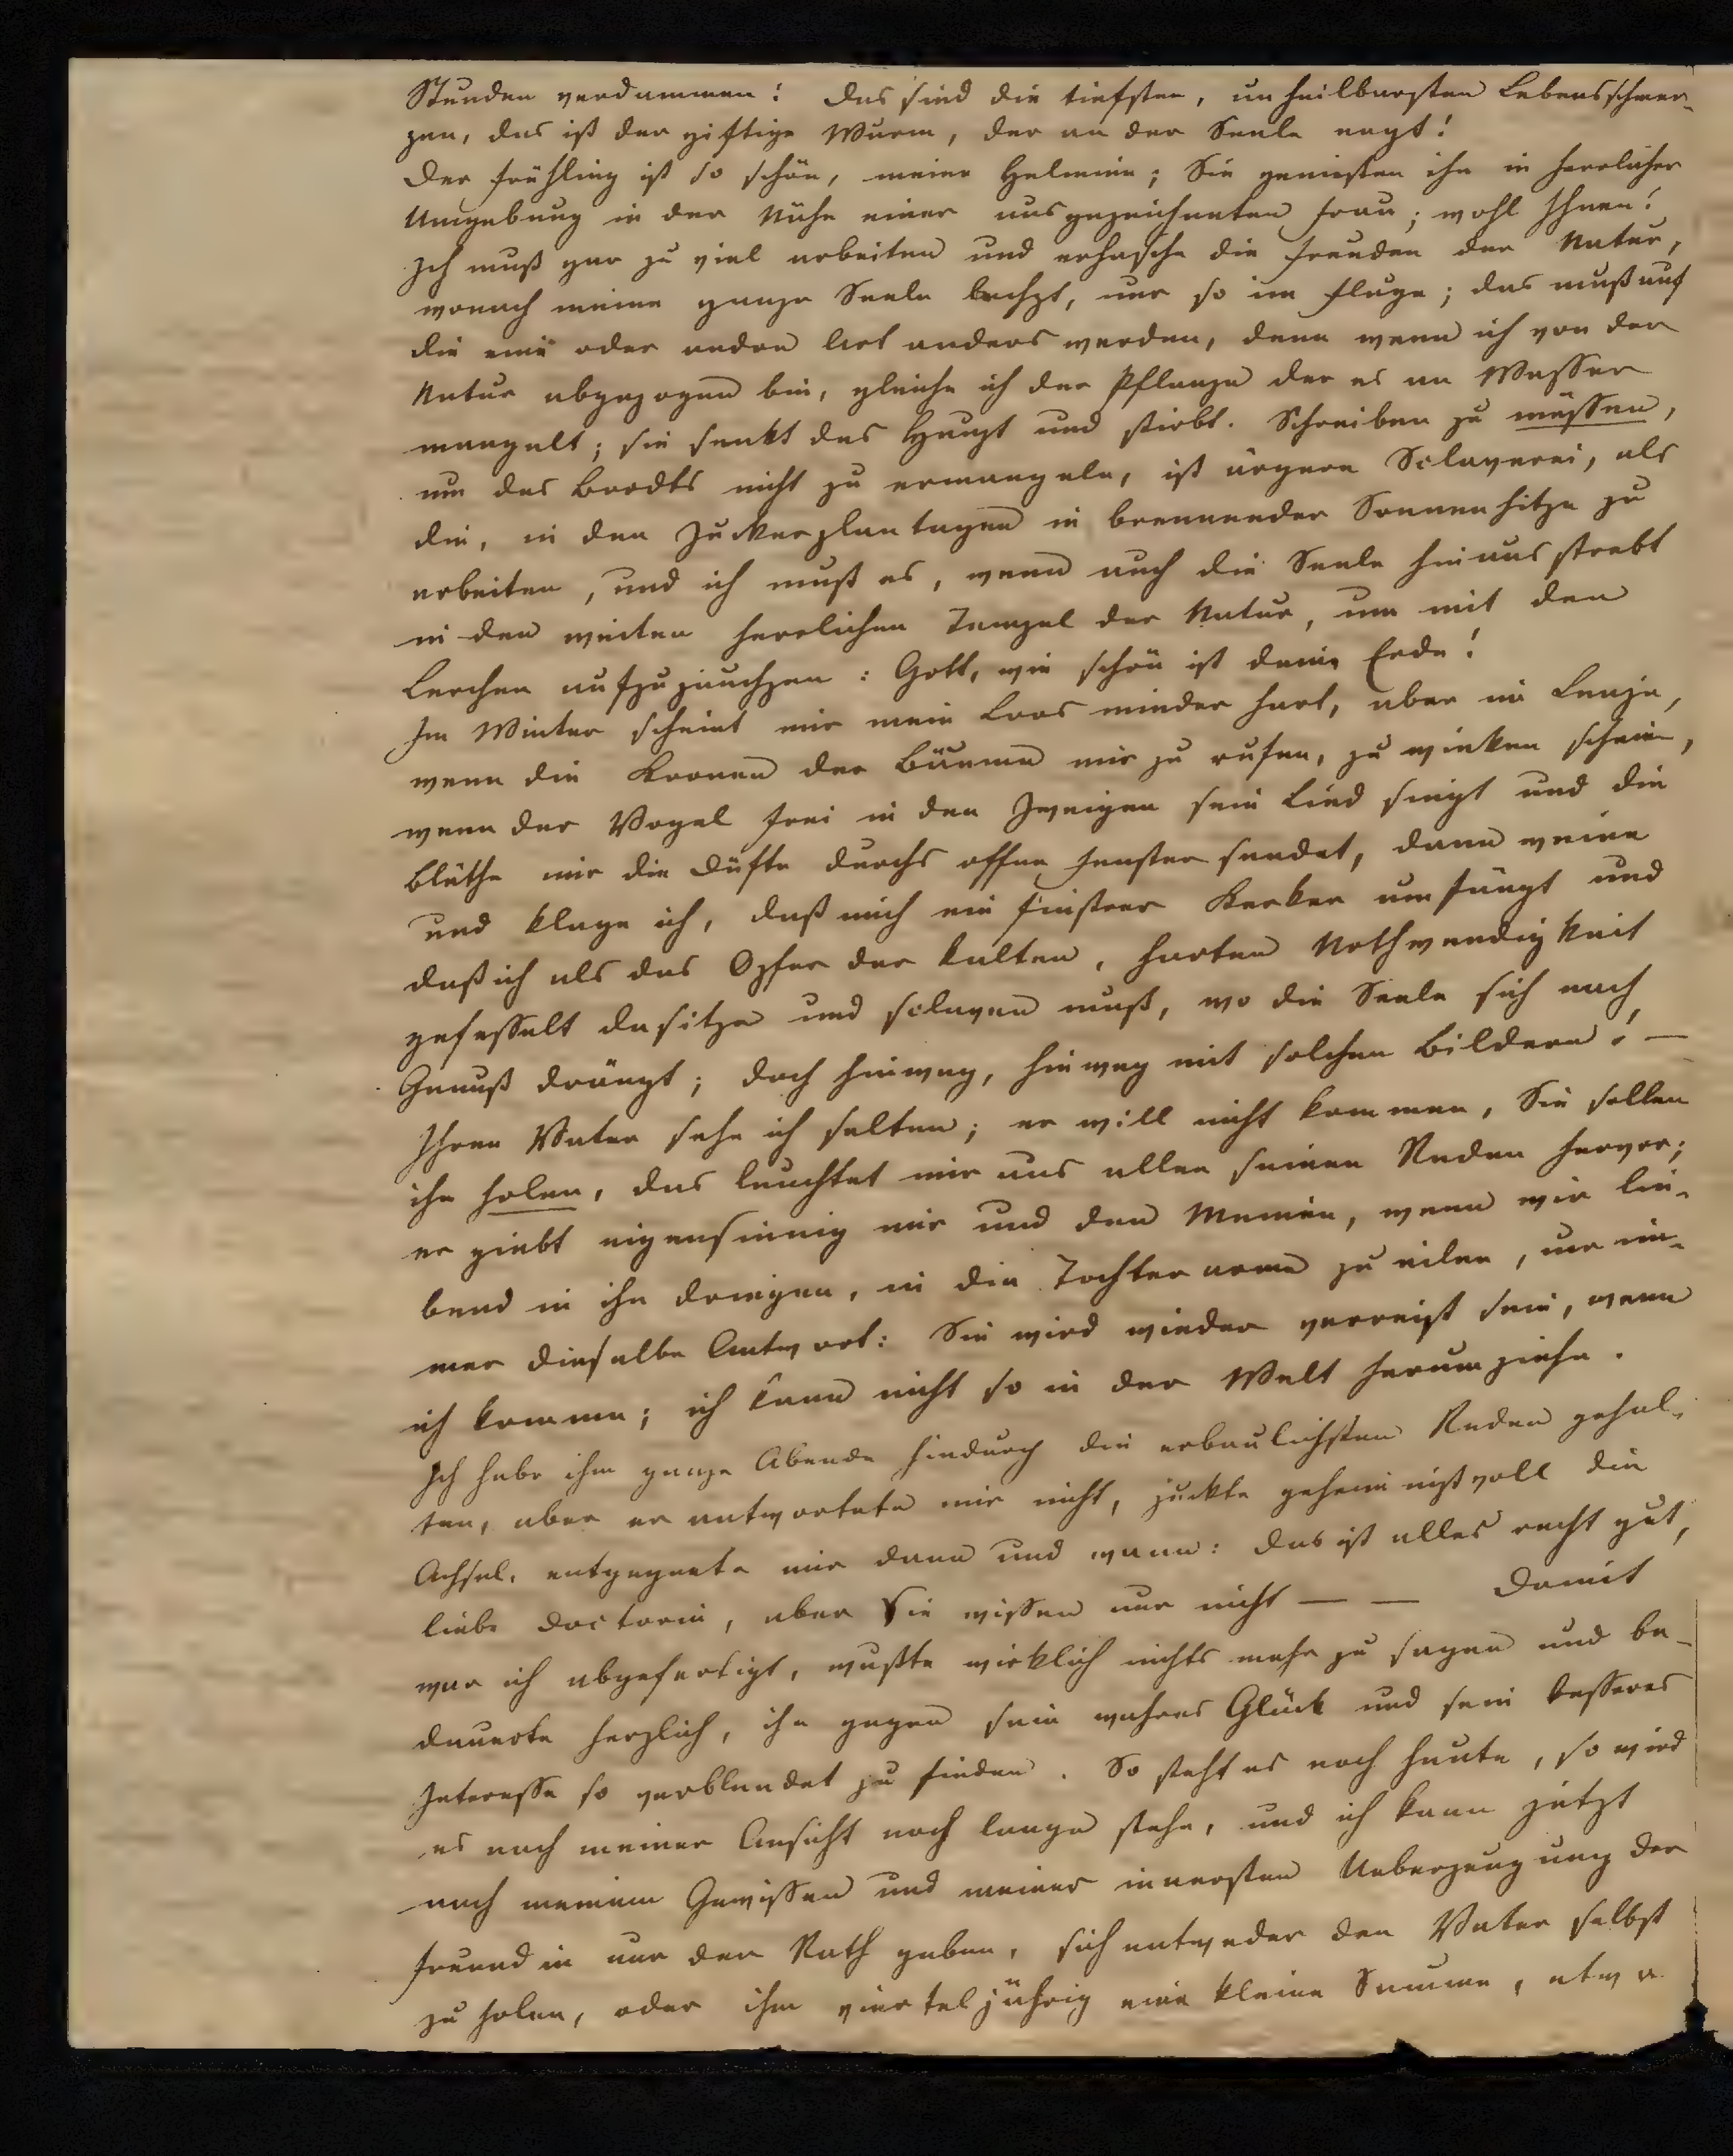 Stunden verdammen! Das sind die tiefsten, unheilbarsten Lebensschmer-
zen, das ist der giftige Wurm, der an der Seele nagt!
Der Frühling ist so schön, meine Helmine; Sie genießen ihn in herrlicher
Umgebung in der Nähe einer ausgezeichneten Frau; wohl Ihnen!
Ich muß gar zu viel arbeiten und erhasche die Freuden der Natur,
wonach meine ganze Seele lechzt, nur so im Fluge; das muß auf
die eine oder andre Art anders werden, denn wenn ich von der
Natur abgezogen bin, gleiche ich der Pflanze der es an Wasser
mangelt; sie senkt das Haupt und stirbt. Schreiben zu müssen,
um des Brodts nicht zu ermangeln, ist ärgere Sclaverei, als
die, in den Zuckerplantagen in brennender Sonnenhitze zu
arbeiten, und ich muß es, wenn auch die Seele hinaus strebt
in den weiten herrlichen Tempel der Natur, um mit den
Lerchen aufzujauchzen: Gott, wie schön ist deine Erde!
Im Winter scheint mir mein Loos minder hart, aber im Lenze,
wenn die Kronen der Bäume mir zu rufen, zu winken scheinen,
wenn der Vogel frei in den Zweigen sein Lied singt und die
Blüthe mir die Düfte durchs offene Fenster sendet, dann weine
und klage ich, daß mich ein finstrer Kerker umfängt und
daß ich als das Opfer der kalten, harten Nothwendigkeit
gefesselt dasitze und sclaven muß, wo die Seele sich nach
Genuß drängt; doch hinweg, hinweg mit solchen Bildern! —
Ihren Vater sehe ich selten; er will nicht kommen, Sie sollen
ihn holen, das leuchtet mir aus allen seinen Reden hervor;
er giebt eigensinnig mir und den Meinen, wenn wir lie-
bend in ihn dringen, in die Tochterarme zu eilen, nur im-
mer dieselbe Antwort: Sie wird wieder verreist sein, wenn
ich komme; ich kann nicht so in der Welt herumziehn.
Ich habe ihm ganze Abende hindurch die erbaulichsten Reden gehal-
ten, aber er antwortete mir nicht, zuckte geheimnißvoll die
Achsel, entgegnete mir dann und wann: das ist alles recht gut,
liebe Doctorin, aber Sie wissen nur nicht — — Damit
war ich abgefertigt, wußte wirklich nichts mehr zu sagen und be-
dauerte herzlich, ihn gegen sein wahres Glück und sein besseres
Interesse so verblendet zu finden. So steht es noch heute, so wird
es nach meiner Ansicht noch lange stehn, und ich kann jetzt
nach meinem Gewissen und meiner innersten Ueberzeugung der
Freundin nur den Rath geben, sich entweder den Vater selbst
zu holen, oder ihm vierteljährig eine kleine Summe, etwa